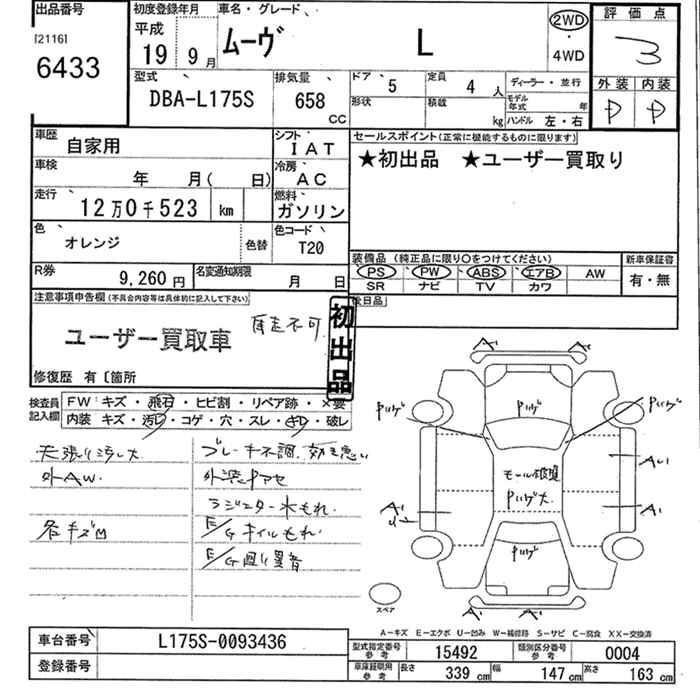 出品番号 初度登録年月 車名・グレード 評価点
[2116] 6433 平成 19年 9月 ムーヴ L 2WD ・ 4WD 3
型式 排気量 ドア 5 定員 4人 ディーラー・並行 外装 内装
DBA-L175S 658 CC 形状 積載 kg モデル年式 年 ハンドル 左・右 P P
車歴 自家用 シフト IAT セールスポイント(正常に機能するものに限ります)
車検 年 月( 日) 冷房 AC ★初出品 ★ユーザー買取り
走行 12万0千523 km 燃料 ガソリン
色 オレンジ 色替 色コード T20
装備品 (純正品に限り○をつけてください) 新車保証書
R券 9,260円 名変通知期限 月 日 PS PW ABS エアB AW 有・無
SR ナビ TV カワ
注意事項申告欄(不具合内容等は具体的に記入して下さい) 後日品
ユーザー買取車 自走不可 初出品
修復歴 有〔箇所
検査員記入欄 FW:キズ・飛石・ヒビ割・リペア跡・×要
内装 キズ・汚レ・コゲ・穴・スレ・ ・破レ
天張り汚レ大 ブレーキ不調、効き悪い
外AW. 外装ヤケアセ
ラジエター水もれ.
各キズ凹 E/Gオイルもれ.
E/G回り異音
A1 A2
Pハゲ Pハゲ Pハゲ
モール破損 Pハゲ大.
AU1
A1 A1
Pハゲ
A1 A1
スペア
A-キズ E-エクボ U-凹み W-補修跡 S-サビ C-腐食 XX-交換済
車台番号 L175S-0093436 型式指定番号 参考 15492 類別区分番号 参考 0004
登録番号 車庫証明用 参考 長さ 339 cm 幅 147 cm 高さ 163 cm